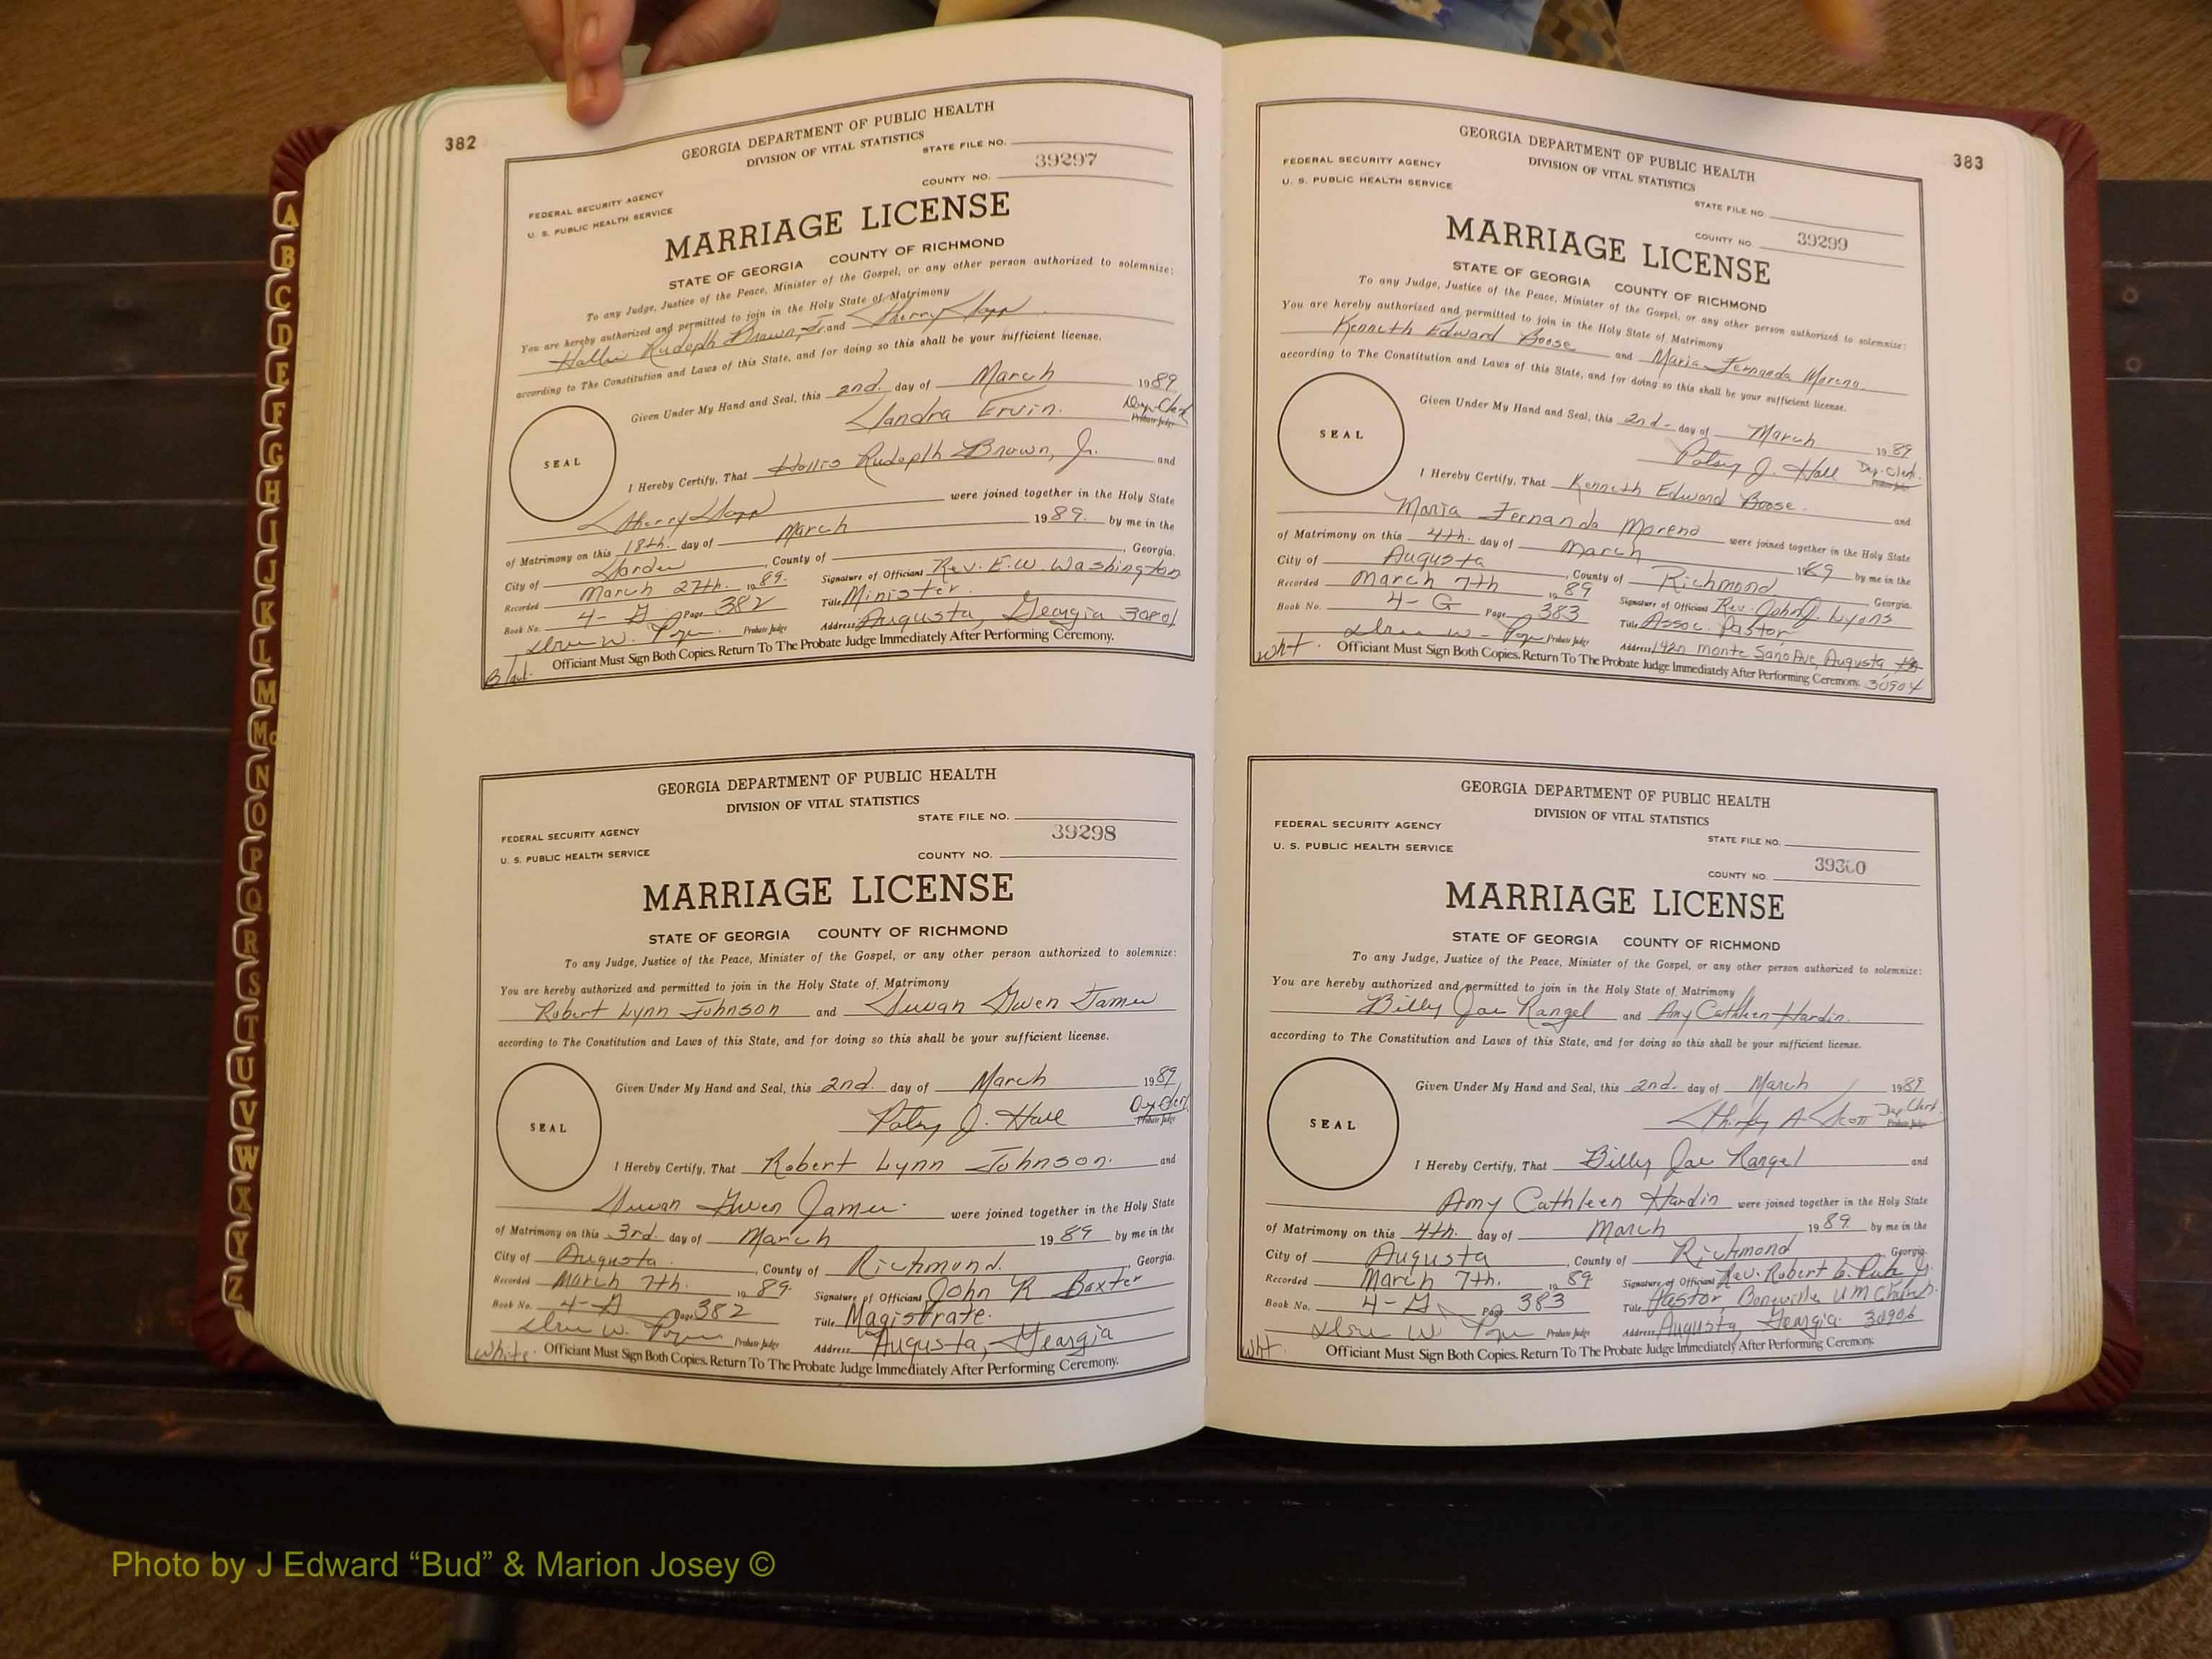 382
GEORGIA DEPARTMENT OF PUBLIC HEALTH
DIVISION OF VITAL STATISTICS
STATE FILE NO.
39297
COUNTY NO.
FEDERAL SECURITY AGENCY
U. S. PUBLIC HEALTH SERVICE
MARRIAGE LICENSE
STATE OF GEORGIA COUNTY OF RICHMOND
To any Judge, Justice of the Peace, Minister of the Gospel, or any other person authorized to solemnize:
You are hereby authorized and permitted to join in the Holy State of Matrimony
Hollis Rudolph Brown, Jr. and Sherry
according to The Constitution and Laws of this State, and for doing so this shall be your sufficient license.
Given Under My Hand and Seal, this 2nd. day of March 1989
Sandra Ervin. Dep. Clerk
Probate Judge
SEAL
I Hereby Certify, That Hollis Rudolph Brown, Jr. and
Sherry were joined together in the Holy State
of Matrimony on this 18th. day of March 1989. by me in the
City of , County of , Georgia.
Recorded March 27th. 1989. Signature of Officiant Rev. E. W. Washington
Book No. 4-G Page 382 Title Minister.
Probate Judge Address Augusta, Georgia 30801
Officiant Must Sign Both Copies. Return To The Probate Judge Immediately After Performing Ceremony.
GEORGIA DEPARTMENT OF PUBLIC HEALTH
DIVISION OF VITAL STATISTICS
STATE FILE NO.
39298
FEDERAL SECURITY AGENCY
U. S. PUBLIC HEALTH SERVICE
COUNTY NO.
MARRIAGE LICENSE
STATE OF GEORGIA COUNTY OF RICHMOND
To any Judge, Justice of the Peace, Minister of the Gospel, or any other person authorized to solemnize:
You are hereby authorized and permitted to join in the Holy State of Matrimony
Robert Lynn Johnson and Susan Gwen James
according to The Constitution and Laws of this State, and for doing so this shall be your sufficient license.
Given Under My Hand and Seal, this 2nd. day of March 1989
Patsy J. Hall Dep. Clerk
Probate Judge
SEAL
I Hereby Certify, That Robert Lynn Johnson. and
Susan Gwen James were joined together in the Holy State
of Matrimony on this 3rd. day of March 1989 by me in the
City of Augusta. , County of Richmond. , Georgia.
Recorded March 7th. 1989. Signature of Officiant John R Baxter
Book No. 4-G Page 382 Title Magistrate.
Probate Judge Address Augusta, Georgia
White. Officiant Must Sign Both Copies. Return To The Probate Judge Immediately After Performing Ceremony.
383
GEORGIA DEPARTMENT OF PUBLIC HEALTH
DIVISION OF VITAL STATISTICS
FEDERAL SECURITY AGENCY
U. S. PUBLIC HEALTH SERVICE
STATE FILE NO.
COUNTY NO. 39299
MARRIAGE LICENSE
STATE OF GEORGIA COUNTY OF RICHMOND
To any Judge, Justice of the Peace, Minister of the Gospel, or any other person authorized to solemnize:
You are hereby authorized and permitted to join in the Holy State of Matrimony
Kenneth Edward Boose and Maria Fernanda Moreno
according to The Constitution and Laws of this State, and for doing so this shall be your sufficient license.
Given Under My Hand and Seal, this 2nd. day of March 1989
Patsy J. Hall Dep. Clerk.
Probate Judge
SEAL
I Hereby Certify, That Kenneth Edward Boose. and
Maria Fernanda Moreno were joined together in the Holy State
of Matrimony on this 4th. day of March 1989 by me in the
City of Augusta , County of Richmond Georgia.
Recorded March 7th 1989 Signature of Officiant Rev. John J. Lyons
Book No. 4-G Page 383 Title Assoc. Pastor
Probate Judge Address 1420 Monte Sano Ave, Augusta, Ga
wht. Officiant Must Sign Both Copies. Return To The Probate Judge Immediately After Performing Ceremony. 30904
GEORGIA DEPARTMENT OF PUBLIC HEALTH
DIVISION OF VITAL STATISTICS
FEDERAL SECURITY AGENCY
U. S. PUBLIC HEALTH SERVICE
STATE FILE NO.
39300
COUNTY NO.
MARRIAGE LICENSE
STATE OF GEORGIA COUNTY OF RICHMOND
To any Judge, Justice of the Peace, Minister of the Gospel, or any other person authorized to solemnize:
You are hereby authorized and permitted to join in the Holy State of Matrimony
Billy Joe Rangel and Amy Cathleen Hardin.
according to The Constitution and Laws of this State, and for doing so this shall be your sufficient license.
Given Under My Hand and Seal, this 2nd. day of March 1989
Shirley A. Scott Dep. Clerk.
Probate Judge
SEAL
I Hereby Certify, That Billy Joe Rangel and
Amy Cathleen Hardin were joined together in the Holy State
of Matrimony on this 4th. day of March 1989 by me in the
City of Augusta , County of Richmond , Georgia.
Recorded March 7th. 1989 Signature of Officiant Rev. Robert
Book No. 4-G Page 383 Title Pastor, UM Church.
Probate Judge Address Augusta, Georgia. 30906
Wht. Officiant Must Sign Both Copies. Return To The Probate Judge Immediately After Performing Ceremony.
A
B
C
D
E
F
G
H
I
J
K
L
M
Mc
N
O
P
Q
R
S
T
U
V
W
X
Y
Z
Photo by J Edward “Bud” & Marion Josey ©